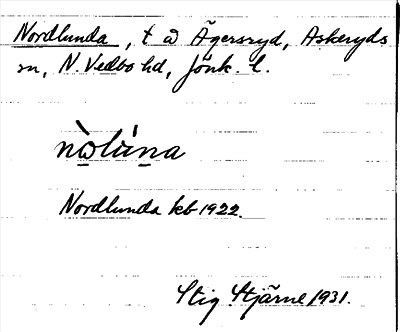 Nordlunda, t a Ägersryd, Askeryds
sn, N Vedbo hd, Jönk. l.
nò̱lúṉa
Nordlunda kb 1922.
Stig Stjärne 1931.